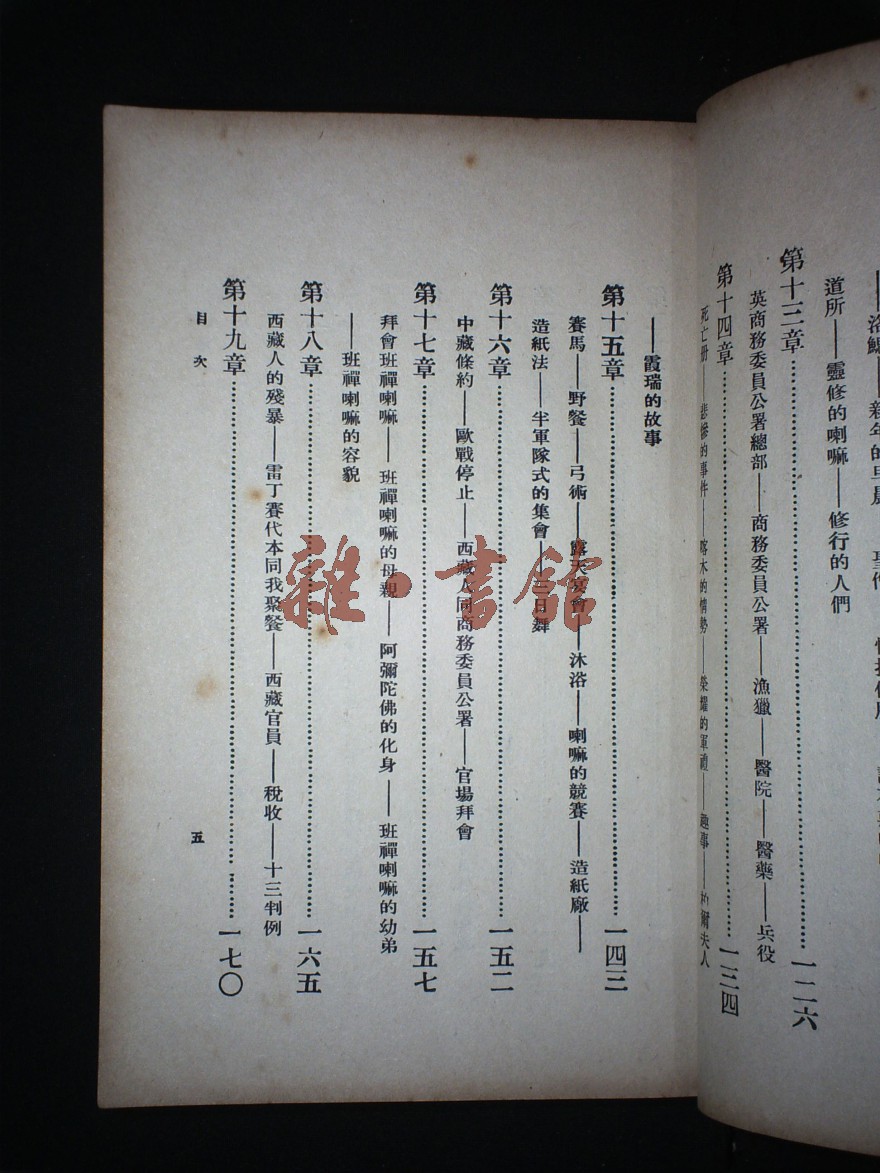 道所——靈修的喇嘛——修行的人們
第十三章……一二六
英商務委員公署總部——商務委員公署——漁獵——醫院——醫藥——兵役
第十四章……一三四
死亡册——悲慘的事件——喀木的情勢——榮耀的軍禮——趣事——柏爾夫人
——霞瑞的故事
第十五章……一四三
賽馬——野餐——弓術——露天宴會——沐浴——喇嘛的競賽——造紙廠——
造紙法——半軍隊式的集會——三日舞
第十六章……一五二
中藏條約——歐戰停止——西藏人同商務委員公署——官場拜會
第十七章……一五七
拜會班禪喇嘛——班禪喇嘛的母親——阿彌陀佛的化身——班禪喇嘛的幼弟
——班禪喇嘛的容貌
第十八章……一六五
西藏人的殘暴——雷丁賽代本同我聚餐——西藏官員——稅收——十三判例
第十九章……一七〇
目次
五
雜·書館